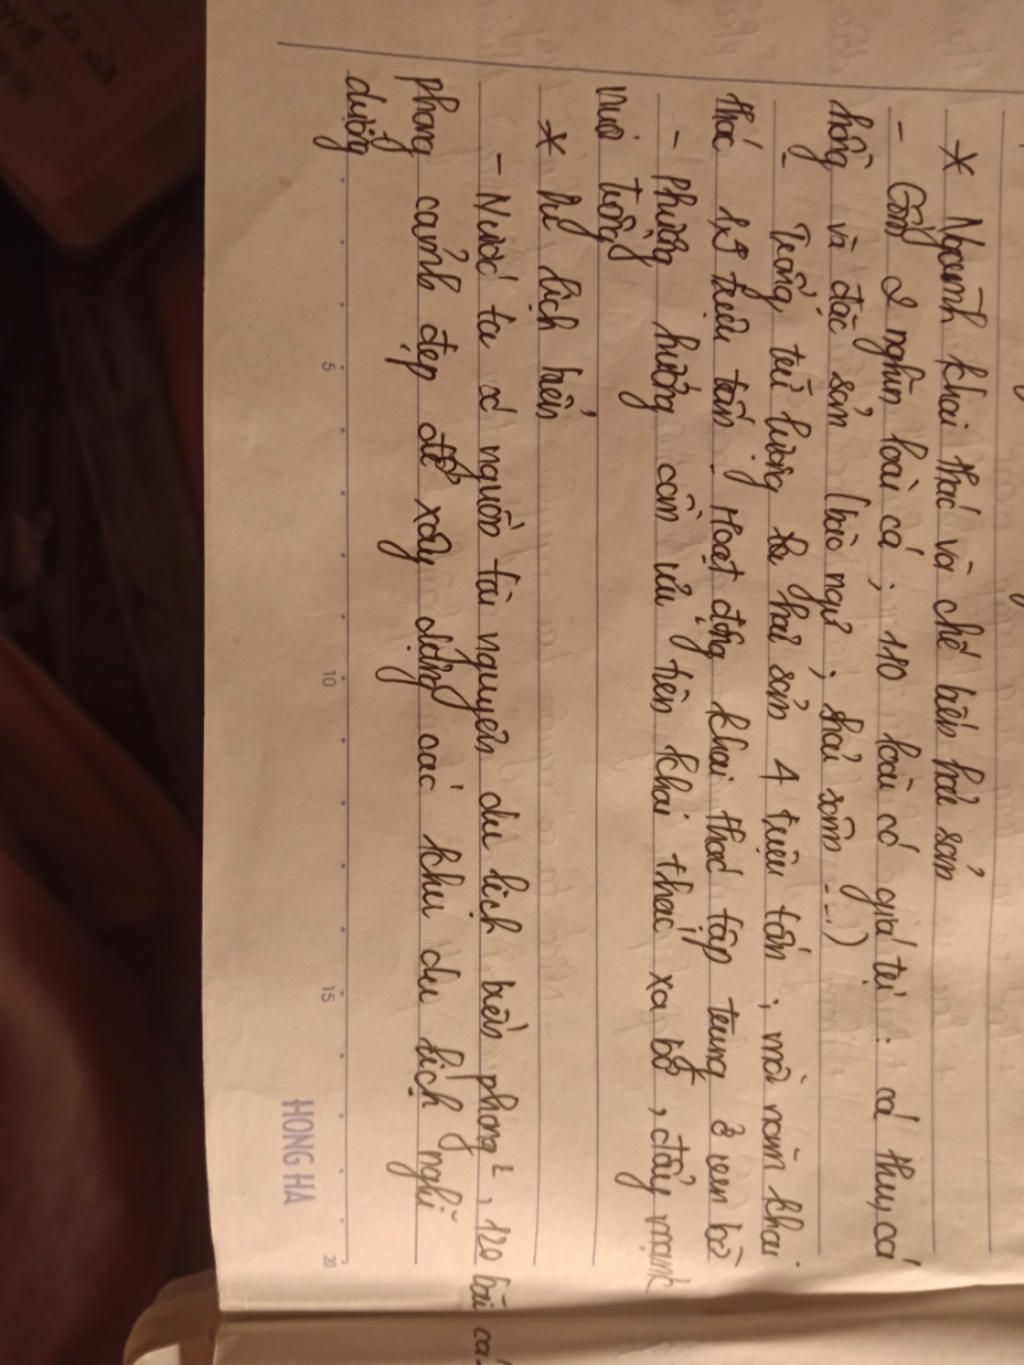 * Ngành khai thác và chế biến hải sản
- Gồm 2 nghìn loài cá, 110 loài có giá trị: cá thu, cá
hồng và đặc sản (bào ngư, hải sâm...)
- Tổng trữ lượng hải sản 4 triệu tấn, mỗi năm khai
thác 1,9 triệu tấn. Hoạt động khai thác tập trung ở ven bờ
- Phương hướng cần ưu tiên khai thác xa bờ, đẩy mạnh
nuôi trồng
* Du lịch biển
- Nước ta có nguồn tài nguyên du lịch biển phong², 120 bãi cá
phong cảnh đẹp để xây dựng các khu du lịch nghĩ
dưỡng
5 10 15 20
HONG HA